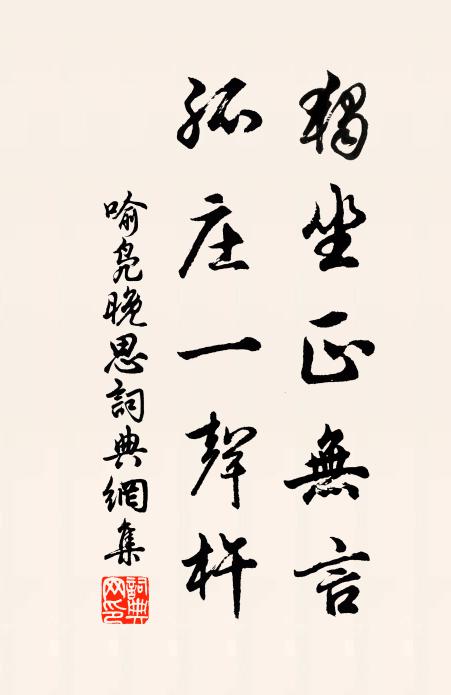 獨坐正無言
孤庄一聲杵
喻鳧晚思詞典網集
詞典网印